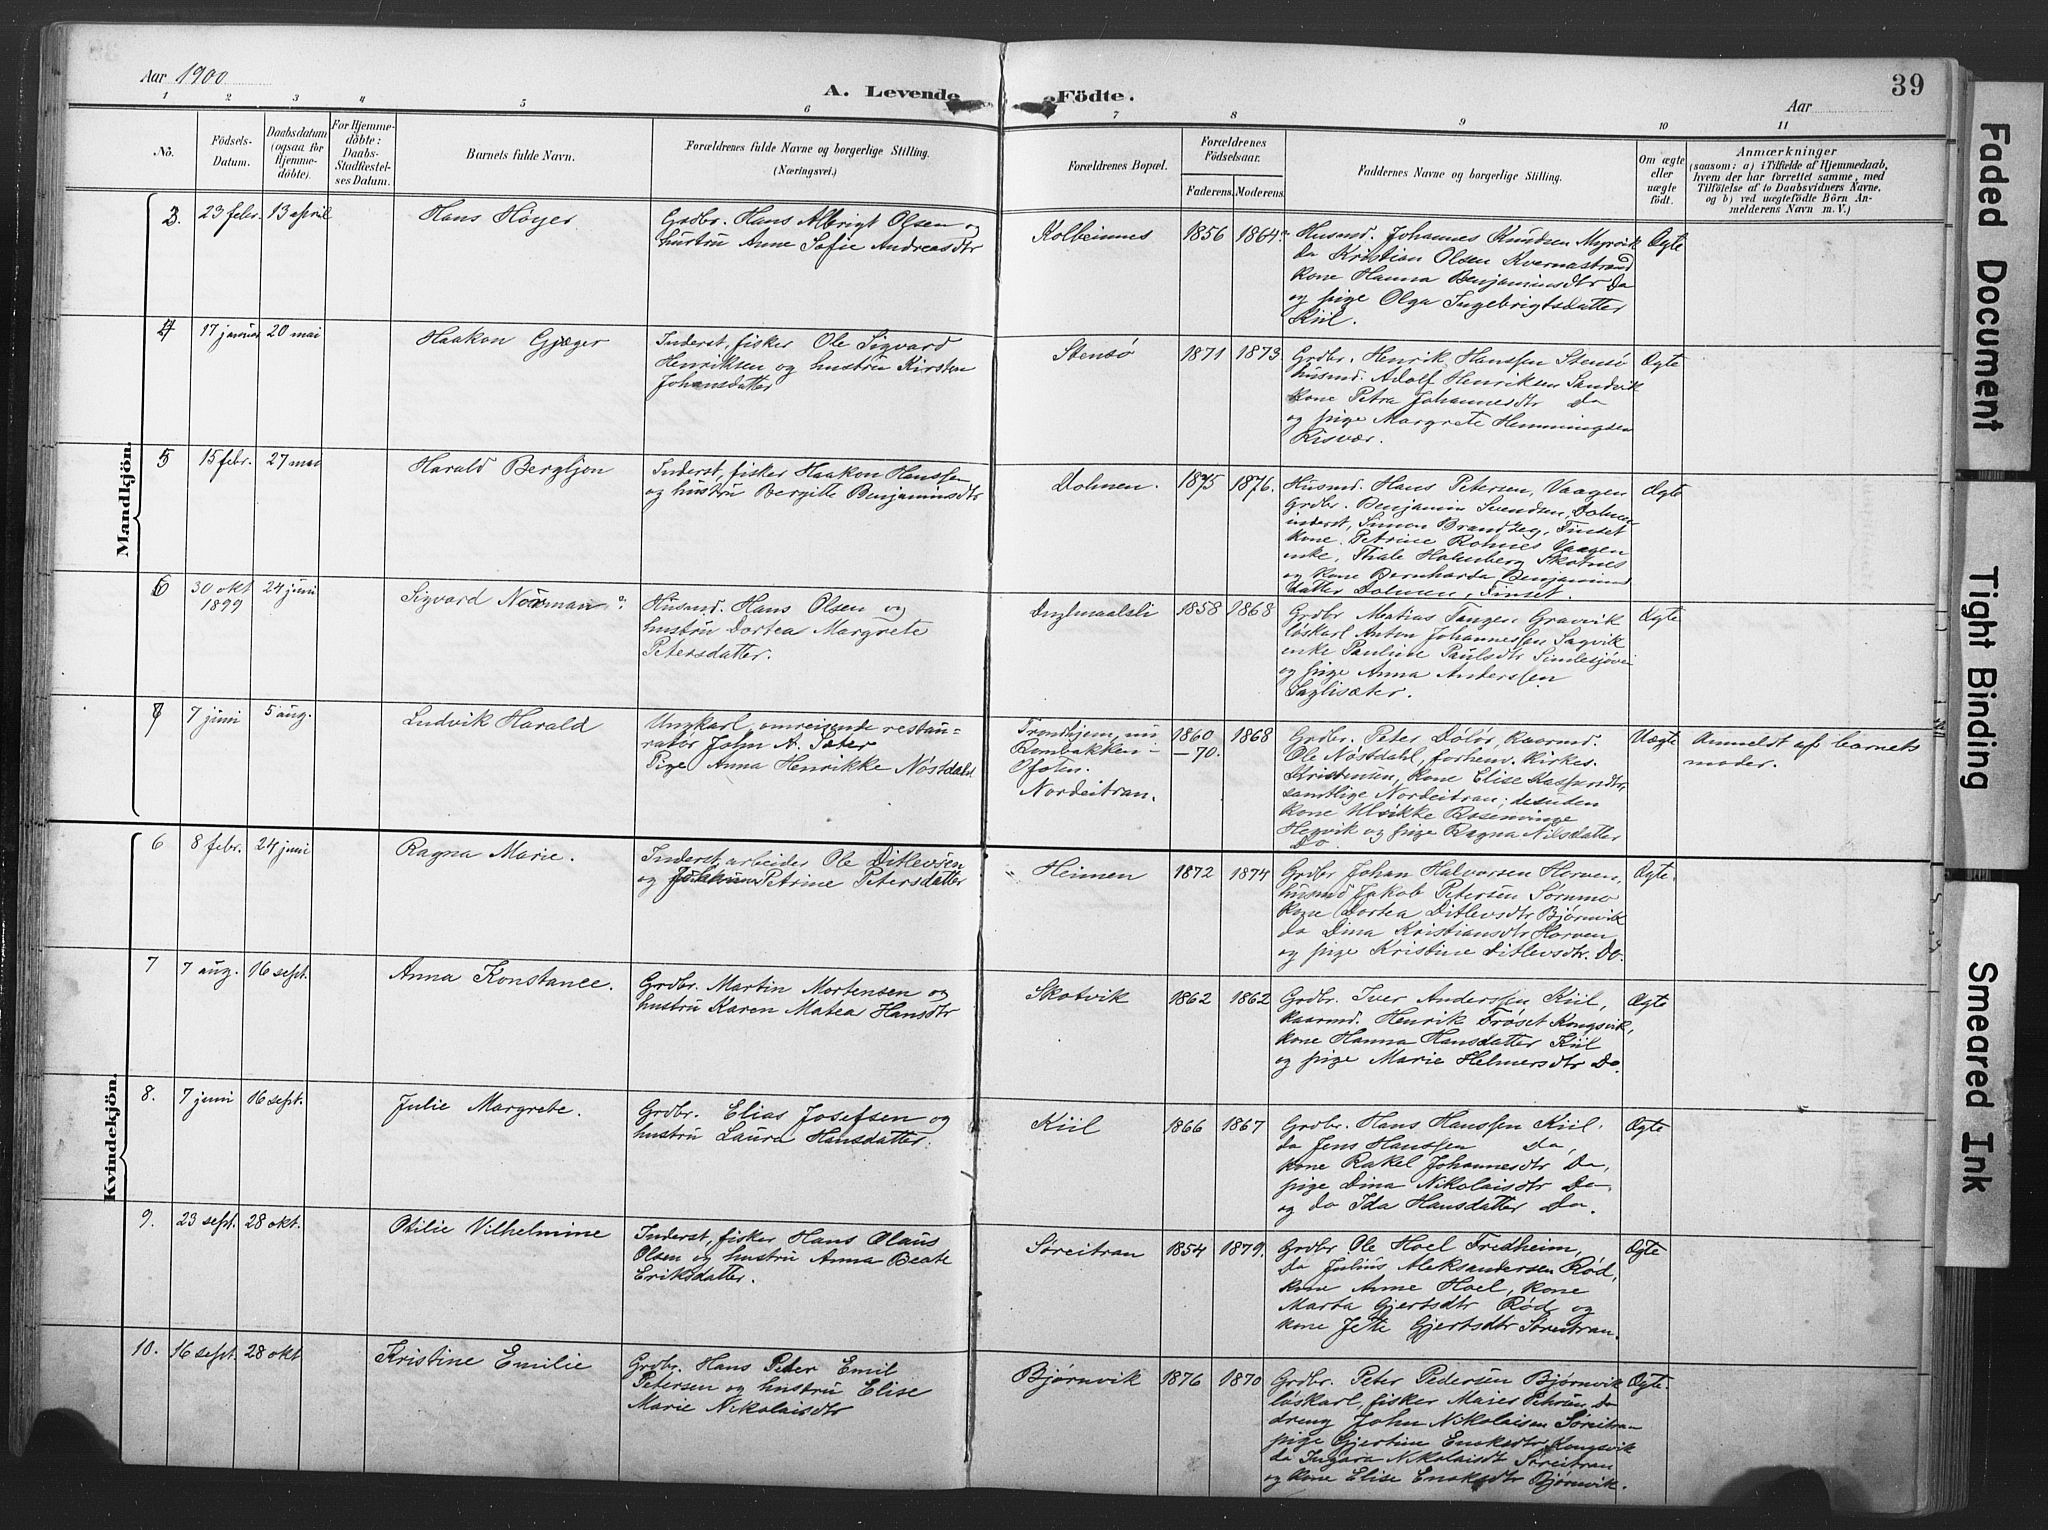 Aar 1900
A. Levende Födte.
Aar
39
1 2 3 4 5 6 7 8 9 10 11
No.
Födsels-Datum.
Daabsdatum (ogsaa for Hjemme-döbte).
For Hjemme-döbte: Daabs-Stadfæstel-ses Datum.
Barnets fulde Navn.
Forældrenes fulde Navne og borgerlige Stilling. (Næringsvei.)
Forældrenes Bopæl.
Forældrenes Födselsaar.
Faderens. Moderens.
Faddernes Navne og borgerlige Stilling.
Om ægte eller uægte födt.
Anmærkninger
(saasom: a) i Tilfælde af Hjemmedaab,
hvem der har forrettet samme, med
Tilföielse af to Daabsvidners Navne,
og b) ved uægtefödte Börn An-
melderens Navn m. V.)
Mandkjön.
3. 23 febr. 13 april
Hans Höyer
Grdbr. Hans Albrigt Olsen og
hustru Anne Sofie Andreasdtr
Kolbeinnes
1856 1864
Husmd. Johannes Knudsen Myrvik
do Kristian Olsen Kvernastrand
kone Hanna Benjaminsdtr do
og pige Olga Ingebrigtsdatter
Kiil.
Ægte
4 17 januar 20 mai
Haakon Gjæger
Inderst, fisker Ole Sigvard
Henriksen og hustru Kirsten
Johansdatter
Stensö
1871 1873
Grdbr. Henrik Hanssen Stensö
husmd. Adolf Henriksen Sandvik
kone Petra Johannesdtr do
og pige Margrete Hemmingsen
Risvær.
Ægte
5 15 febr. 27 mai
Harald Bergljon
Inderst, fisker Haakon Hanssen
og hustru Bergitte Benjaminsdtr
Dolmen.
1875 1876.
Husmd. Hans Petersen, Vaagen
Grdbr. Benjamin Svendsen, Dolmen
inderst, Simon Brandzeg, Finset
kone Petrine Rotnes Vaagen
enke, Thale Holmberg Skotnes
og kone Bernharda Benjamins
datter Dolmen, Finset.
Ægte
6 30 okt 1899 24 juni
Sigvard Norman
Husmd. Hans Olsen og
hustru Dortea Margrete
Petersdatter.
1858 1868
Grdbr. Matias Tangen Gravvik
löskarl Anton Johannessen Sagvik
enke Pauline Paulsdtr
og pige Anna Anderssen
Saglisæter.
Ægte
7 7 juni 5 aug.
Ludvik Harald
Ungkarl, omreisende restau-
ratör John A. Sæter
Pige Anna Henrikke Nöstdahl
Trondhjem, nu
Rombakken-
Ofoten.
Nordeitran.
1860 -70. 1868
Grdbr. Peter Dölör, kaarmd.
Ole Nöstdahl, forhenv. kirkes.
Kristensen, kone Elise Kaspersdtr,
samtlige Nordeitran; desuden
kone Ulrikke Rosenvinge
Hegvik og pige Ragna Nilsdatter
Do.
Uægte
Anmeldt af barnets
moder.
Kvindekjön.
6 8 febr. 24 juni
Ragna Marie.
Inderst, arbeider Ole Ditlevsen
og hustru Petrine Petersdatter
Heimen
1872 1874
Grdbr Johan Halvorsen Horven,
husmd Jakob Petersen Sørmmo
kone Dortea Ditlevsdtr Bjørnvik
do Dina Kristiansdtr Horven
og pige Kristine Ditlevsdtr. Do.
Ægte.
7 7 aug. 16 sept.
Anna Konstance.
Grdbr. Martin Mortensen og
hustru Karen Matea Hansdtr
Skotvik
1862 1862
Grdbr. Iver Anderssen Kiil,
kaarmd. Henrik Fröset Kongsvik,
kone Hanna Hansdatter Kiil
og pige Marie Helmersdtr Do.
Ægte
8. 7 juni 16 sept.
Julie Margrete.
Grdbr. Elias Josefsen og
hustru Laura Hansdatter.
Kiil
1866 1867
Grdbr. Hans Hanssen Kiil.
do Jens Hanssen Do,
kone Rakel Johannesdtr Do,
pige Dina Nikolaisdtr Do
og do Ida Hansdatter Do.
Ægte
9. 23 sept. 28 okt.
Otilie Vilhelmine
Inderst, fisker Hans Olaus
Olsen og hustru Anna Beate
Eriksdatter.
Søreitran
1854 1879.
Grdbr Ole Hoel Fredheim,
do Julius Aleksandersen Rød,
kone Anne Hoel, kone
Marta Gjertsdtr Rød og
kone Jete Gjertsdtr Søreitran.
Ægte
10. 16 sept. 28 okt
Kristine Emilie
Grdbr. Hans Peter Emil
Petersen og hustru Elise
Marie Nikolaisdtr
Bjørnvik
1876 1870
Grdbr. Peter Pedersen Bjørnvik
löskarl, fisker Do
dreng John Nikolaisen Søreitran
pige Gjertine Enoksdtr Kongsvik
do Ingara Nikolaisdtr Søreitran
og kone Elise Enoksdtr Bjørnvik.
Ægte.
Faded Document
Tight Binding
Smeared Ink